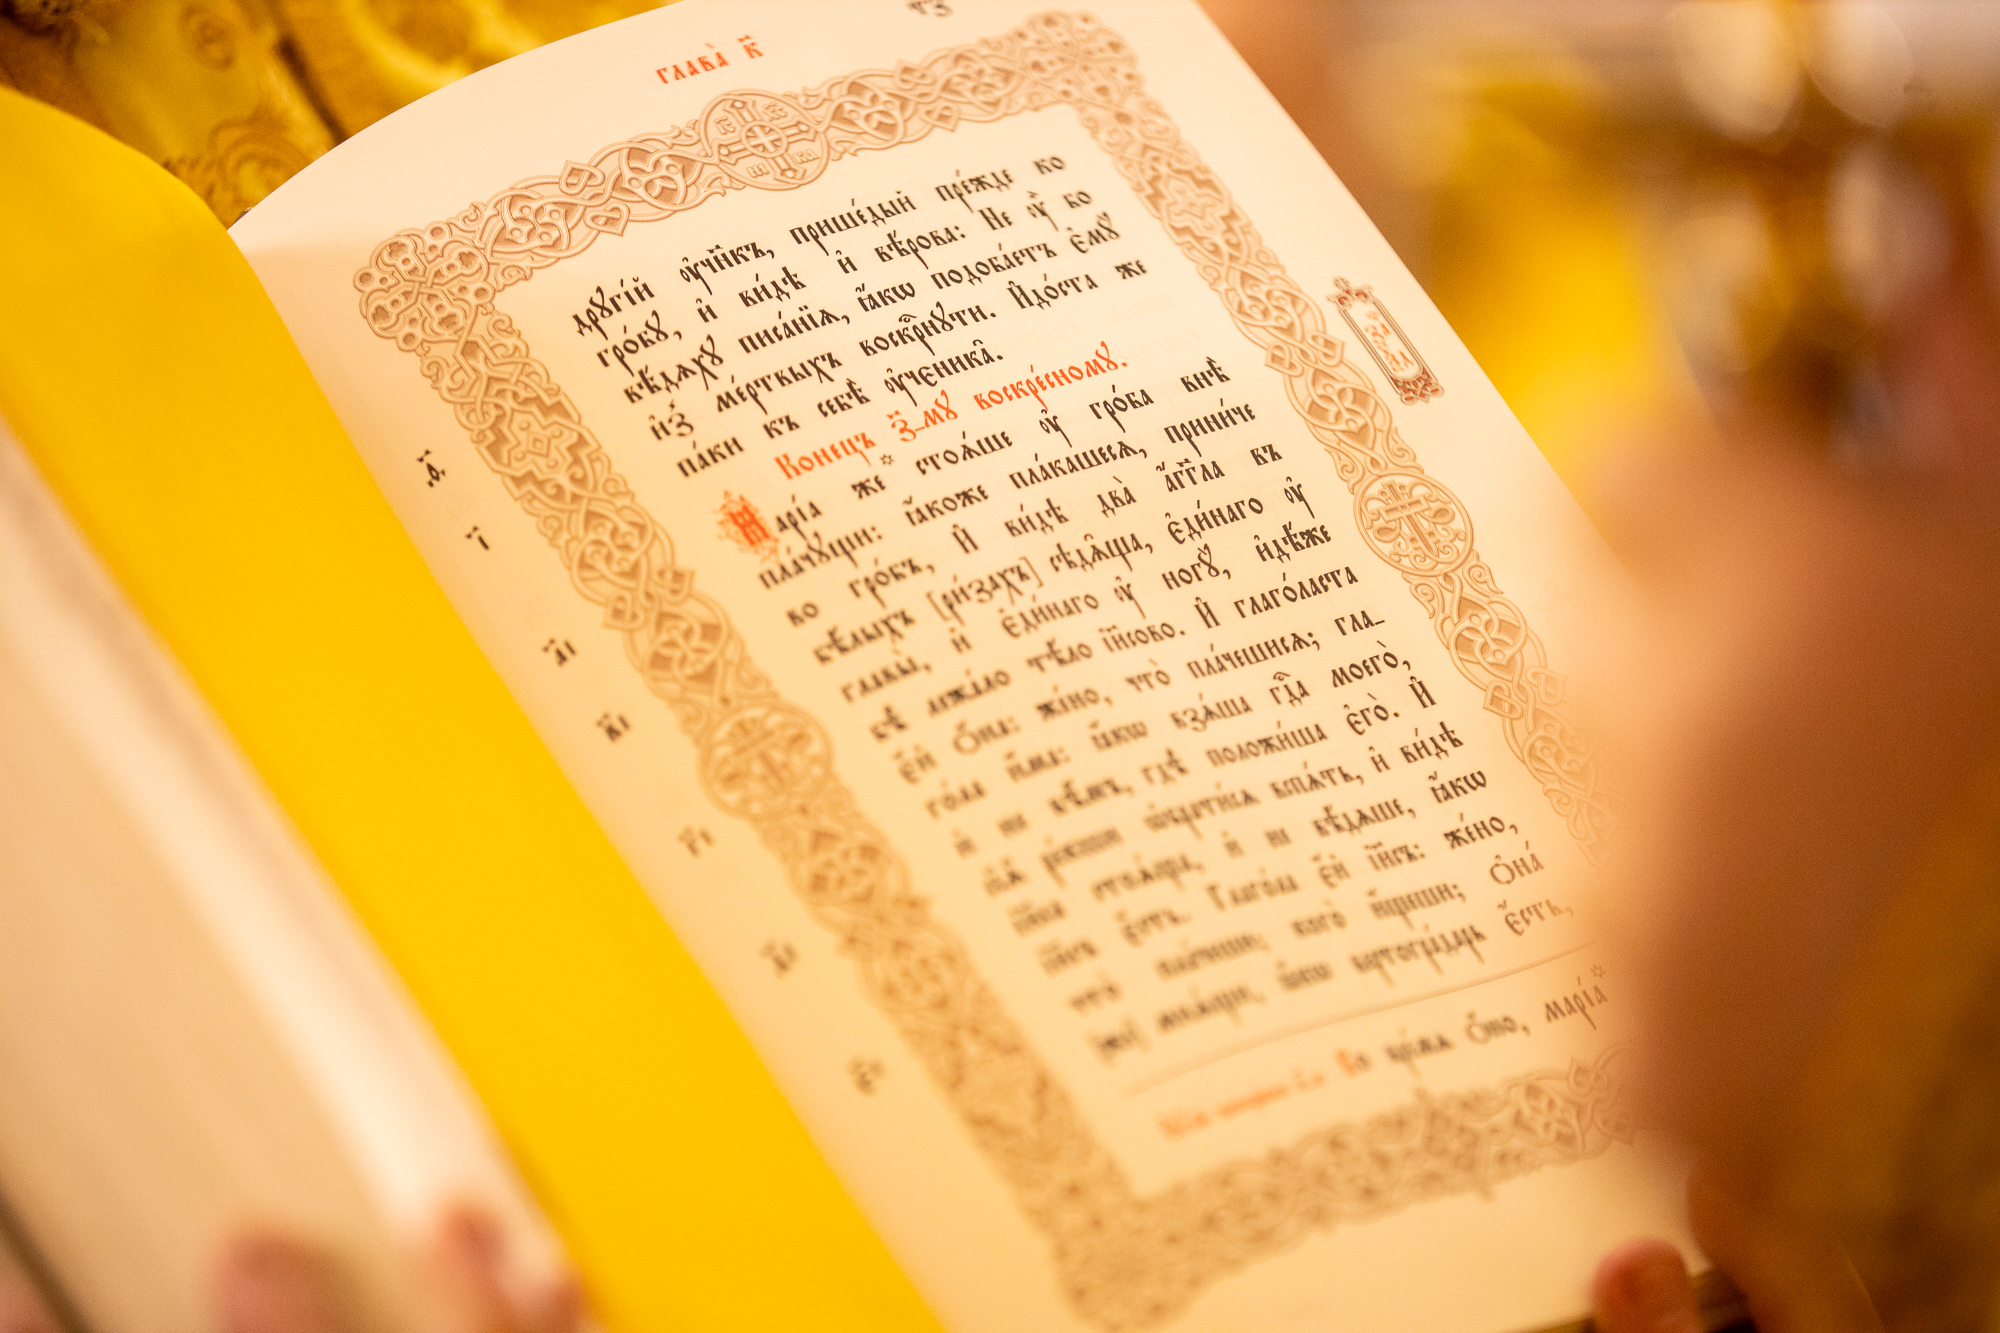 глава̀ к҃
другі́й ᲂу҆чн҃и́къ, прише́дый пре́жде ко
гро́бу, и҆ ви́дѣ и҆ вѣ́рова: Не ᲂу҆̀ бо
вѣ́дѧху писа́нїѧ, ꙗ҆́кѡ подоба́етъ є҆мꙋ̀
и҆з̾ ме́ртвыхъ воскрⷭ҇нꙋти. И҆до́ста же
па́ки къ себѣ̀ ᲂу҆чєника̑.
Коне́цъ з҃-мꙋ воскре́сномꙋ.
Марі́а же стоѧ́ше ᲂу҆ гро́ба внѣ̀
пла́чꙋщи: ꙗ҆́коже пла́кашесѧ, прини́че
во гро́бъ, И҆ ви́дѣ два̀ а҆́гг҃ла въ
бѣ́лыхъ [ри́захъ] сѣдѧ̑ща, є҆ди́наго ᲂу҆
главы̀, и҆ є҆ди́наго ᲂу҆ ногꙋ̀, и҆дѣ́же
бѣ̀ лежа́ло тѣ́ло і҆и҃сово. И҆ глаго́ласта
є҆́й ѻ҆́на: же́но, что̀ пла́чешисѧ; гла-
го́ла и҆́ма: ꙗ҆́кѡ взѧ́ша гдⷭ҇а моего̀,
и҆ не вѣ́мъ, гдѣ̀ положи́ша є҆го̀. И҆
сїѧ̑ ре́кши ѡ҆брати́сѧ вспѧ́ть, и҆ ви́дѣ
і҆и҃са стоѧ́ща, и҆ не вѣ́дѧше, ꙗ҆́кѡ
і҆и҃съ є҆́сть. Глаго́ла є҆́й і҆и҃съ: же́но,
что̀ пла́чеши; кого̀ и҆́щеши; ѻ҆на́
[же] мнѧ́щи, ꙗ҆́кѡ вертогра́дарь є҆́сть,
Во вре́мѧ ѻ҆́но, марі́а